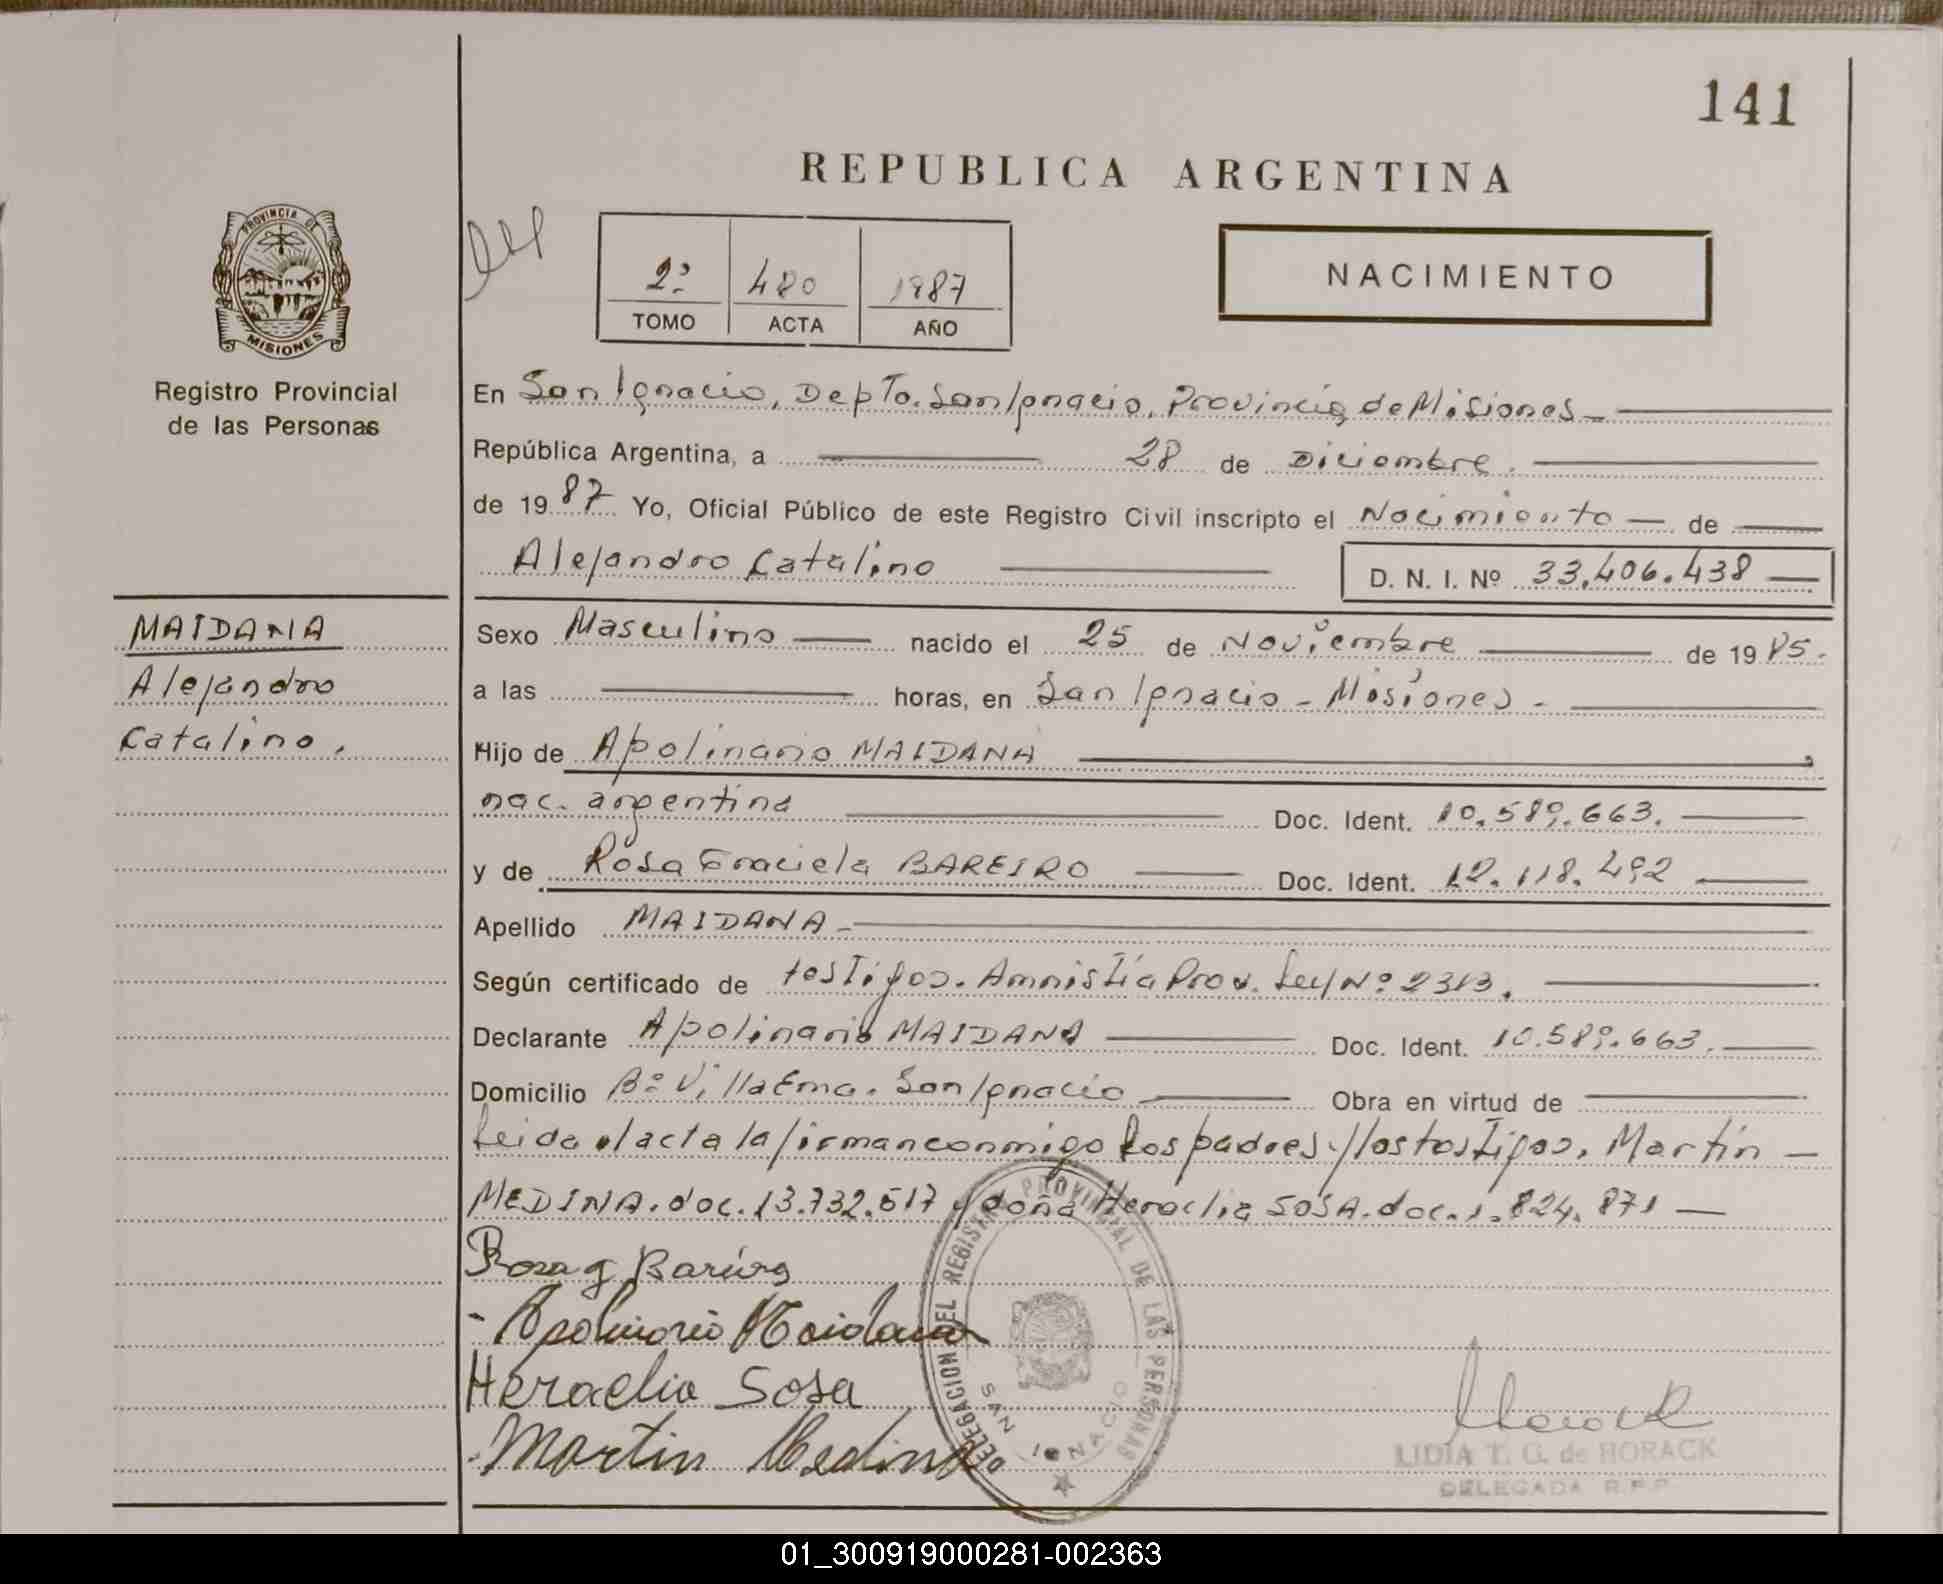 141
REPUBLICA ARGENTINA
PROVINCIA DE
MISIONES
Registro Provincial
de las Personas
2º 480 1987
TOMO ACTA AÑO
NACIMIENTO
En San Ignacio, Depto. San Ignacio, Provincia de Misiones -
República Argentina, a 28 de Diciembre.
de 1987 Yo, Oficial Público de este Registro Civil inscripto el Nacimiento de
Alejandro Catalino D. N. I. Nº 33.406.438
MAIDANA
Alejandro
Catalino.
Sexo Masculino nacido el 25 de Noviembre de 1985.
a las horas, en San Ignacio - Misiones -
Hijo de Apolinario MAIDANA
nac. argentina Doc. Ident. 10.589.663.
y de Rosa Graciela BAREIRO Doc. Ident. 12.118.492
Apellido MAIDANA -
Según certificado de testigos. Amnistía Prov. Ley Nº 2313.
Declarante Apolinario MAIDANA Doc. Ident. 10.589.663.
Domicilio Bº Villa Ema. San Ignacio Obra en virtud de
Leida el acta la firman conmigo los padres y los testigos, Martín
MEDINA. doc. 13.732.517 y doña Heraclia SOSA. doc. 1.824.871
Rosa g Bareiro
- Apolinario Maidana
Heraclia Sosa
Martin Medina
DELEGACION DEL REGISTRO PROVINCIAL DE LAS PERSONAS
SAN IGNACIO
LIDIA T. G. de HORACK
DELEGADA R.P.P.
01_300919000281-002363